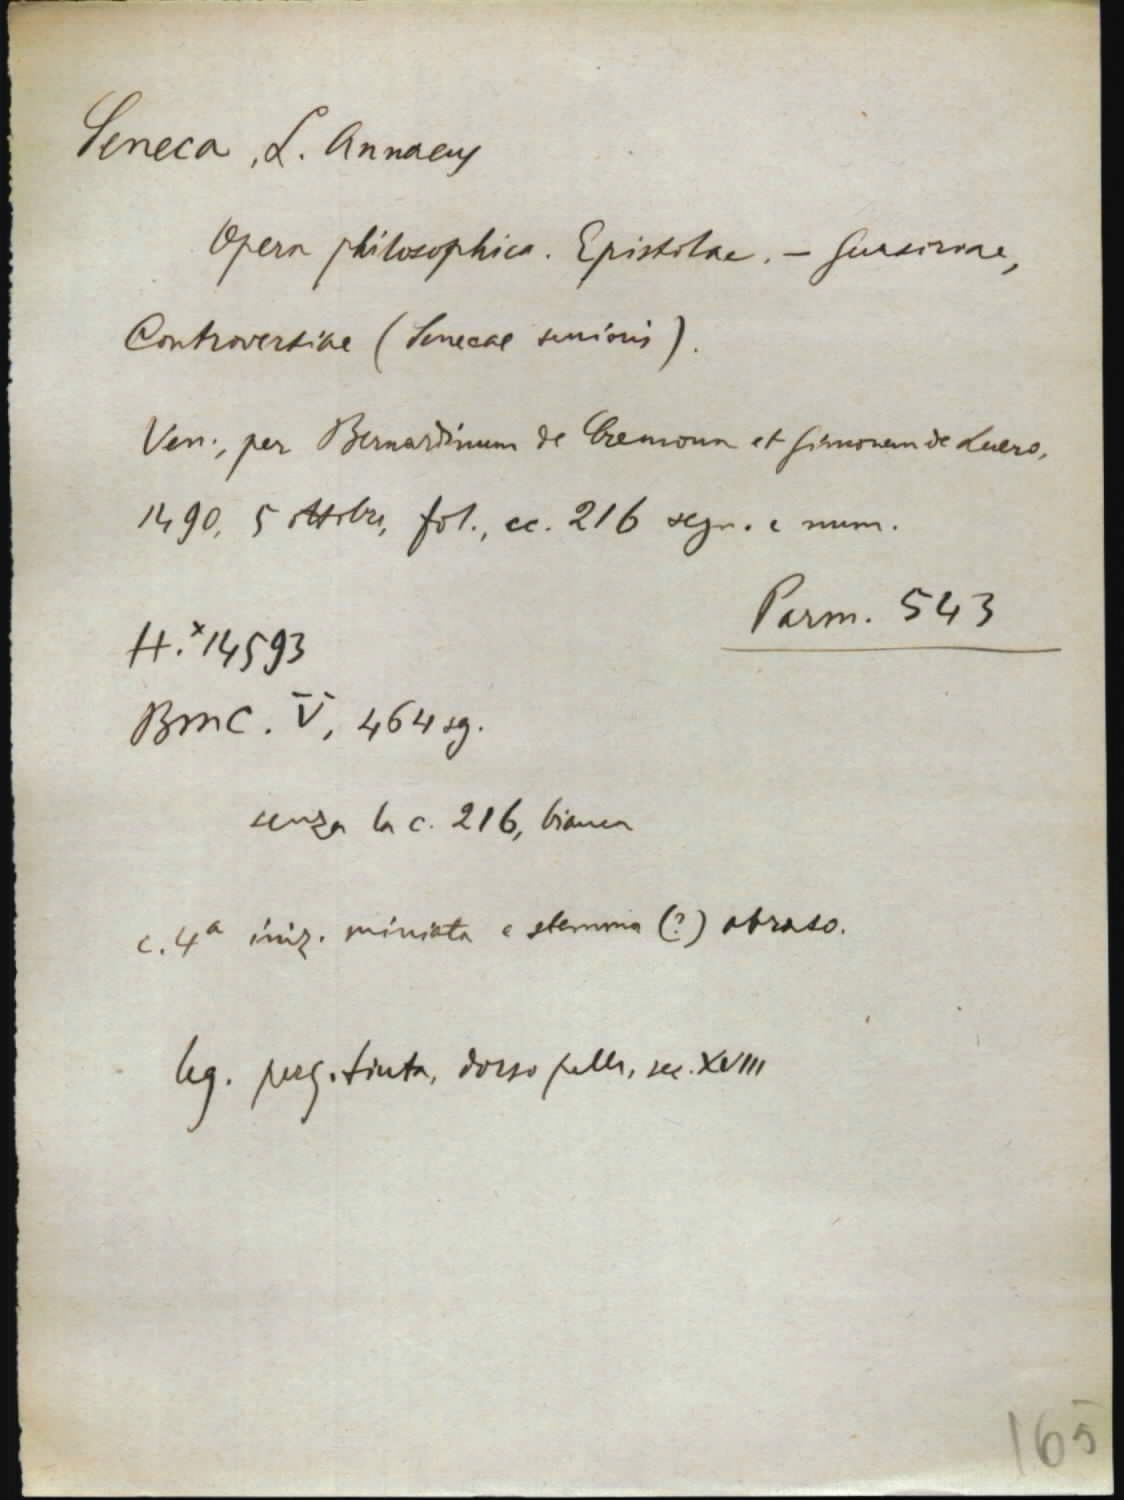 Seneca, L. Annaeus
Opera philosophica. Epistolae. – Suasoriae,
Controversiae (Senecae senioris).
Ven., per Bernardinum de Cremona et Simonem de Luero,
1490, 5 ottobre, fol., cc. 216 segn. e num.
Parm. 543
H.ˣ 14593
BMC. V, 464 sg.
senza la c. 216, bianca
c. 4ª iniz. miniata e stemma (?) abraso.
leg. perg. tinta, dorso pelle, sec. XVIII
165